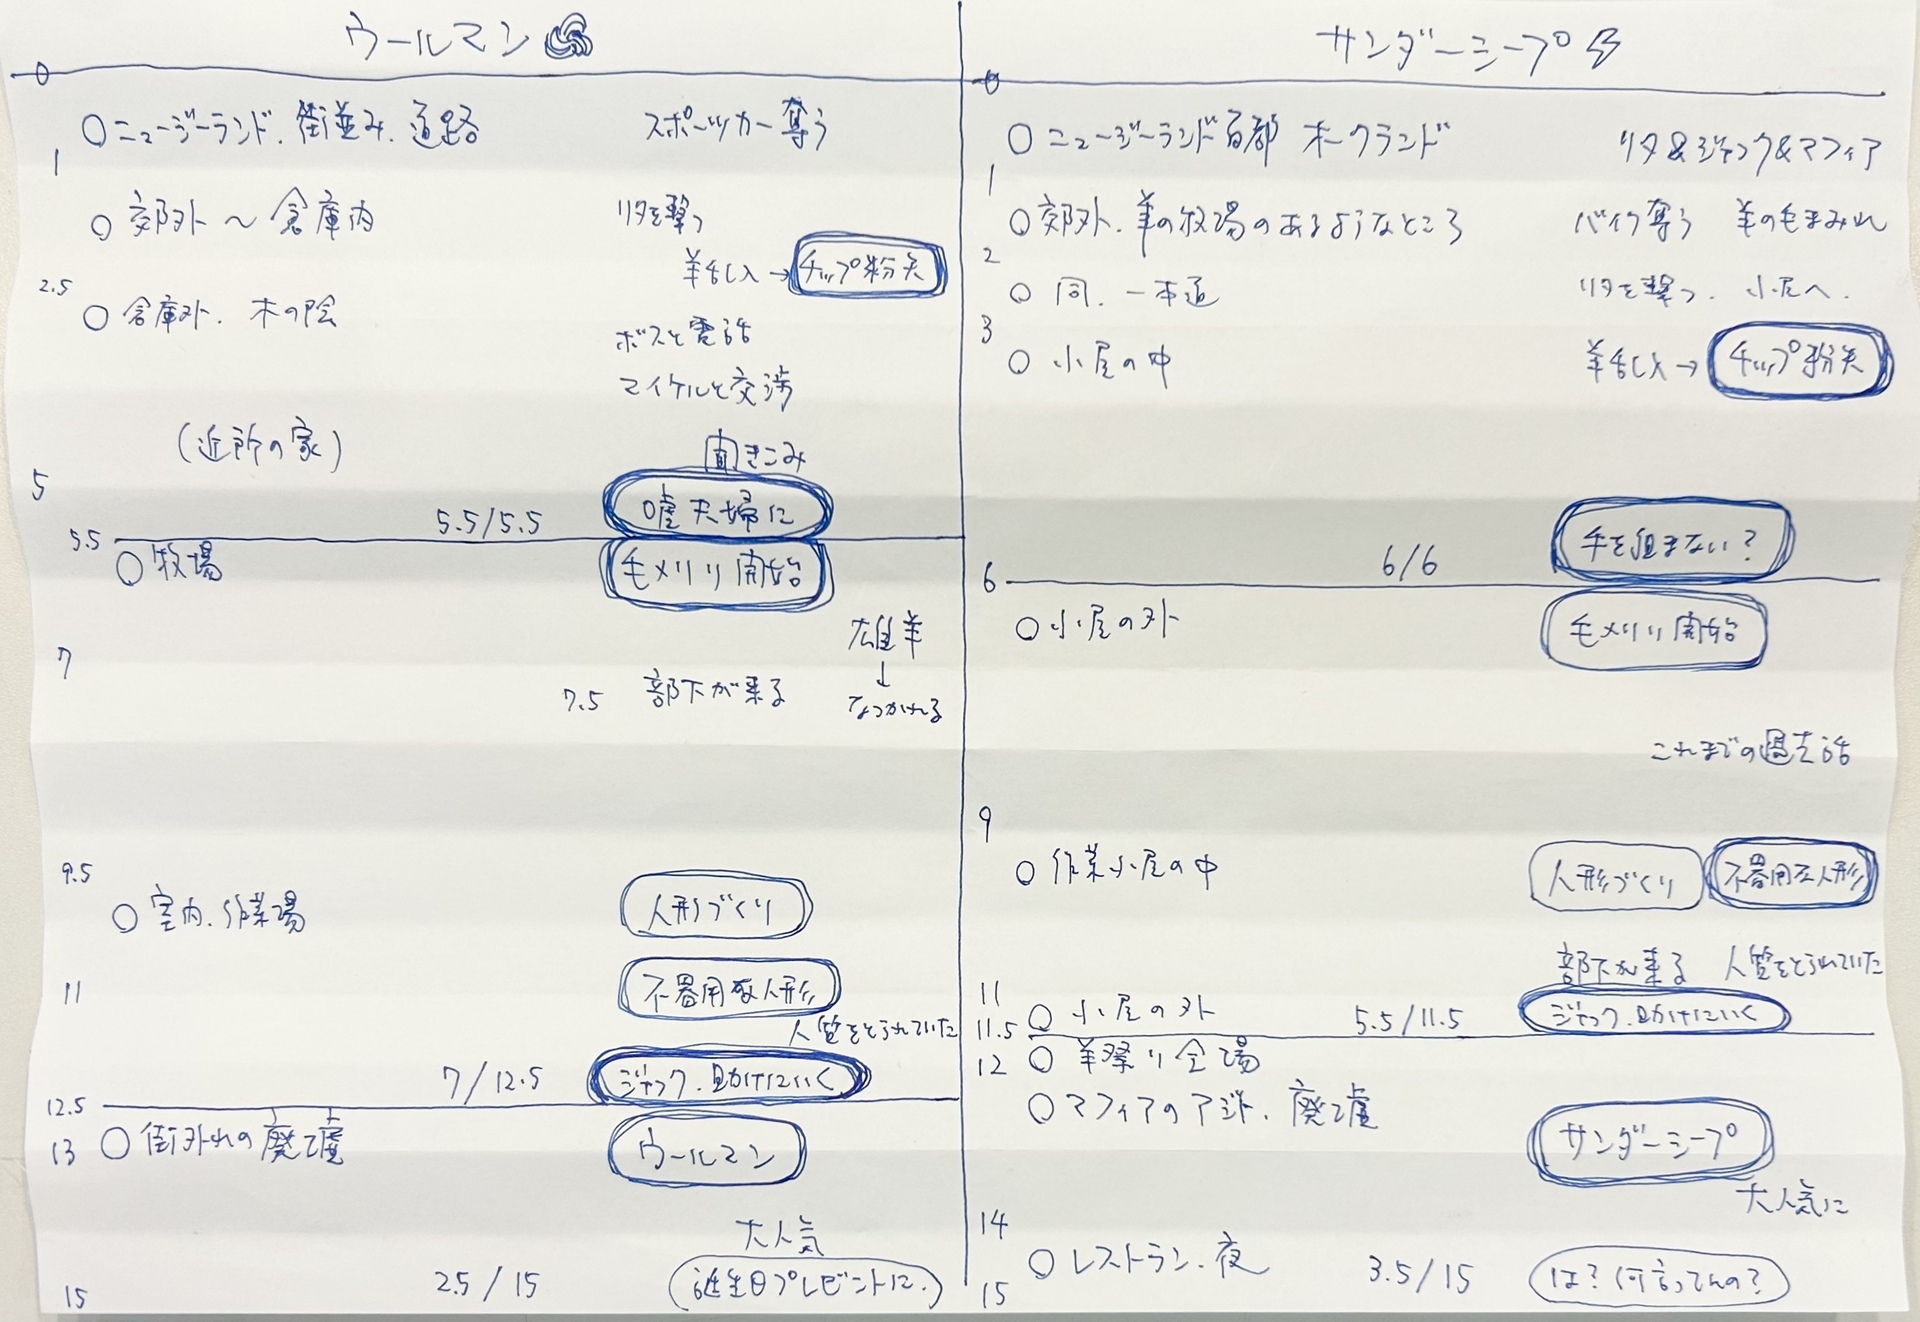 ウールマン
0
○ニュージーランド.街並み.道路 スポーツカー奪う
1
○郊外～倉庫内 リタを撃つ
羊乱入→チップ粉失
2.5
○倉庫外.木の陰
ボスと電話
マイケルと交渉
(近所の家) 聞きこみ
5
5.5/5.5 嘘夫婦に
5.5
○牧場 毛刈り開始
7
雄羊
↓
なつかれる
7.5 部下が来る
9.5
○室内.作業場 人形づくり
11 不器用な人形
人質をとられていた
7/12.5 ジャック.助けにいく
12.5
13 ○街外れの廃墟 ウールマン
大人気
15 2.5/15 誕生日プレゼントに.
サンダーシープ
0
○ニュージーランド首都 オークランド リタ&ジャック&マフィア
1
○郊外.羊の牧場のあるようなところ バイク奪う 羊の毛まみれ
2
○同.一本道 リタを撃つ.小屋へ.
3
○小屋の中 羊乱入→チップ粉失
6/6 手を組まない?
6
○小屋の外 毛刈り開始
これまでの過去話
9
○作業小屋の中 人形づくり 不器用な人形
部下が来る 人質をとられていた
11
○小屋の外 5.5/11.5 ジャック.助けにいく
11.5
12 ○羊祭り会場
○マフィアのアジト.廃墟 サンダーシープ
大人気に
14
○レストラン.夜 3.5/15 は?何言ってんの?
15